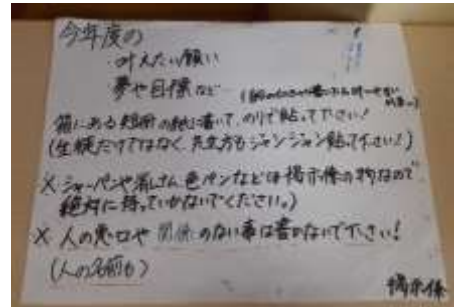 今年度の
・叶えたい願い
夢や目標など
箱にある短冊の紙に書いて、のりで貼って下さい！
(生徒だけではなく、先生方もジャンジャン貼って下さい！)
× シャーペンや消しゴム、色ペンなどは掲示係の物なので
絶対に持っていかないでください。)
× 人の悪口や関係のない事は書かないで下さい！
(人の名前も)
掲示係